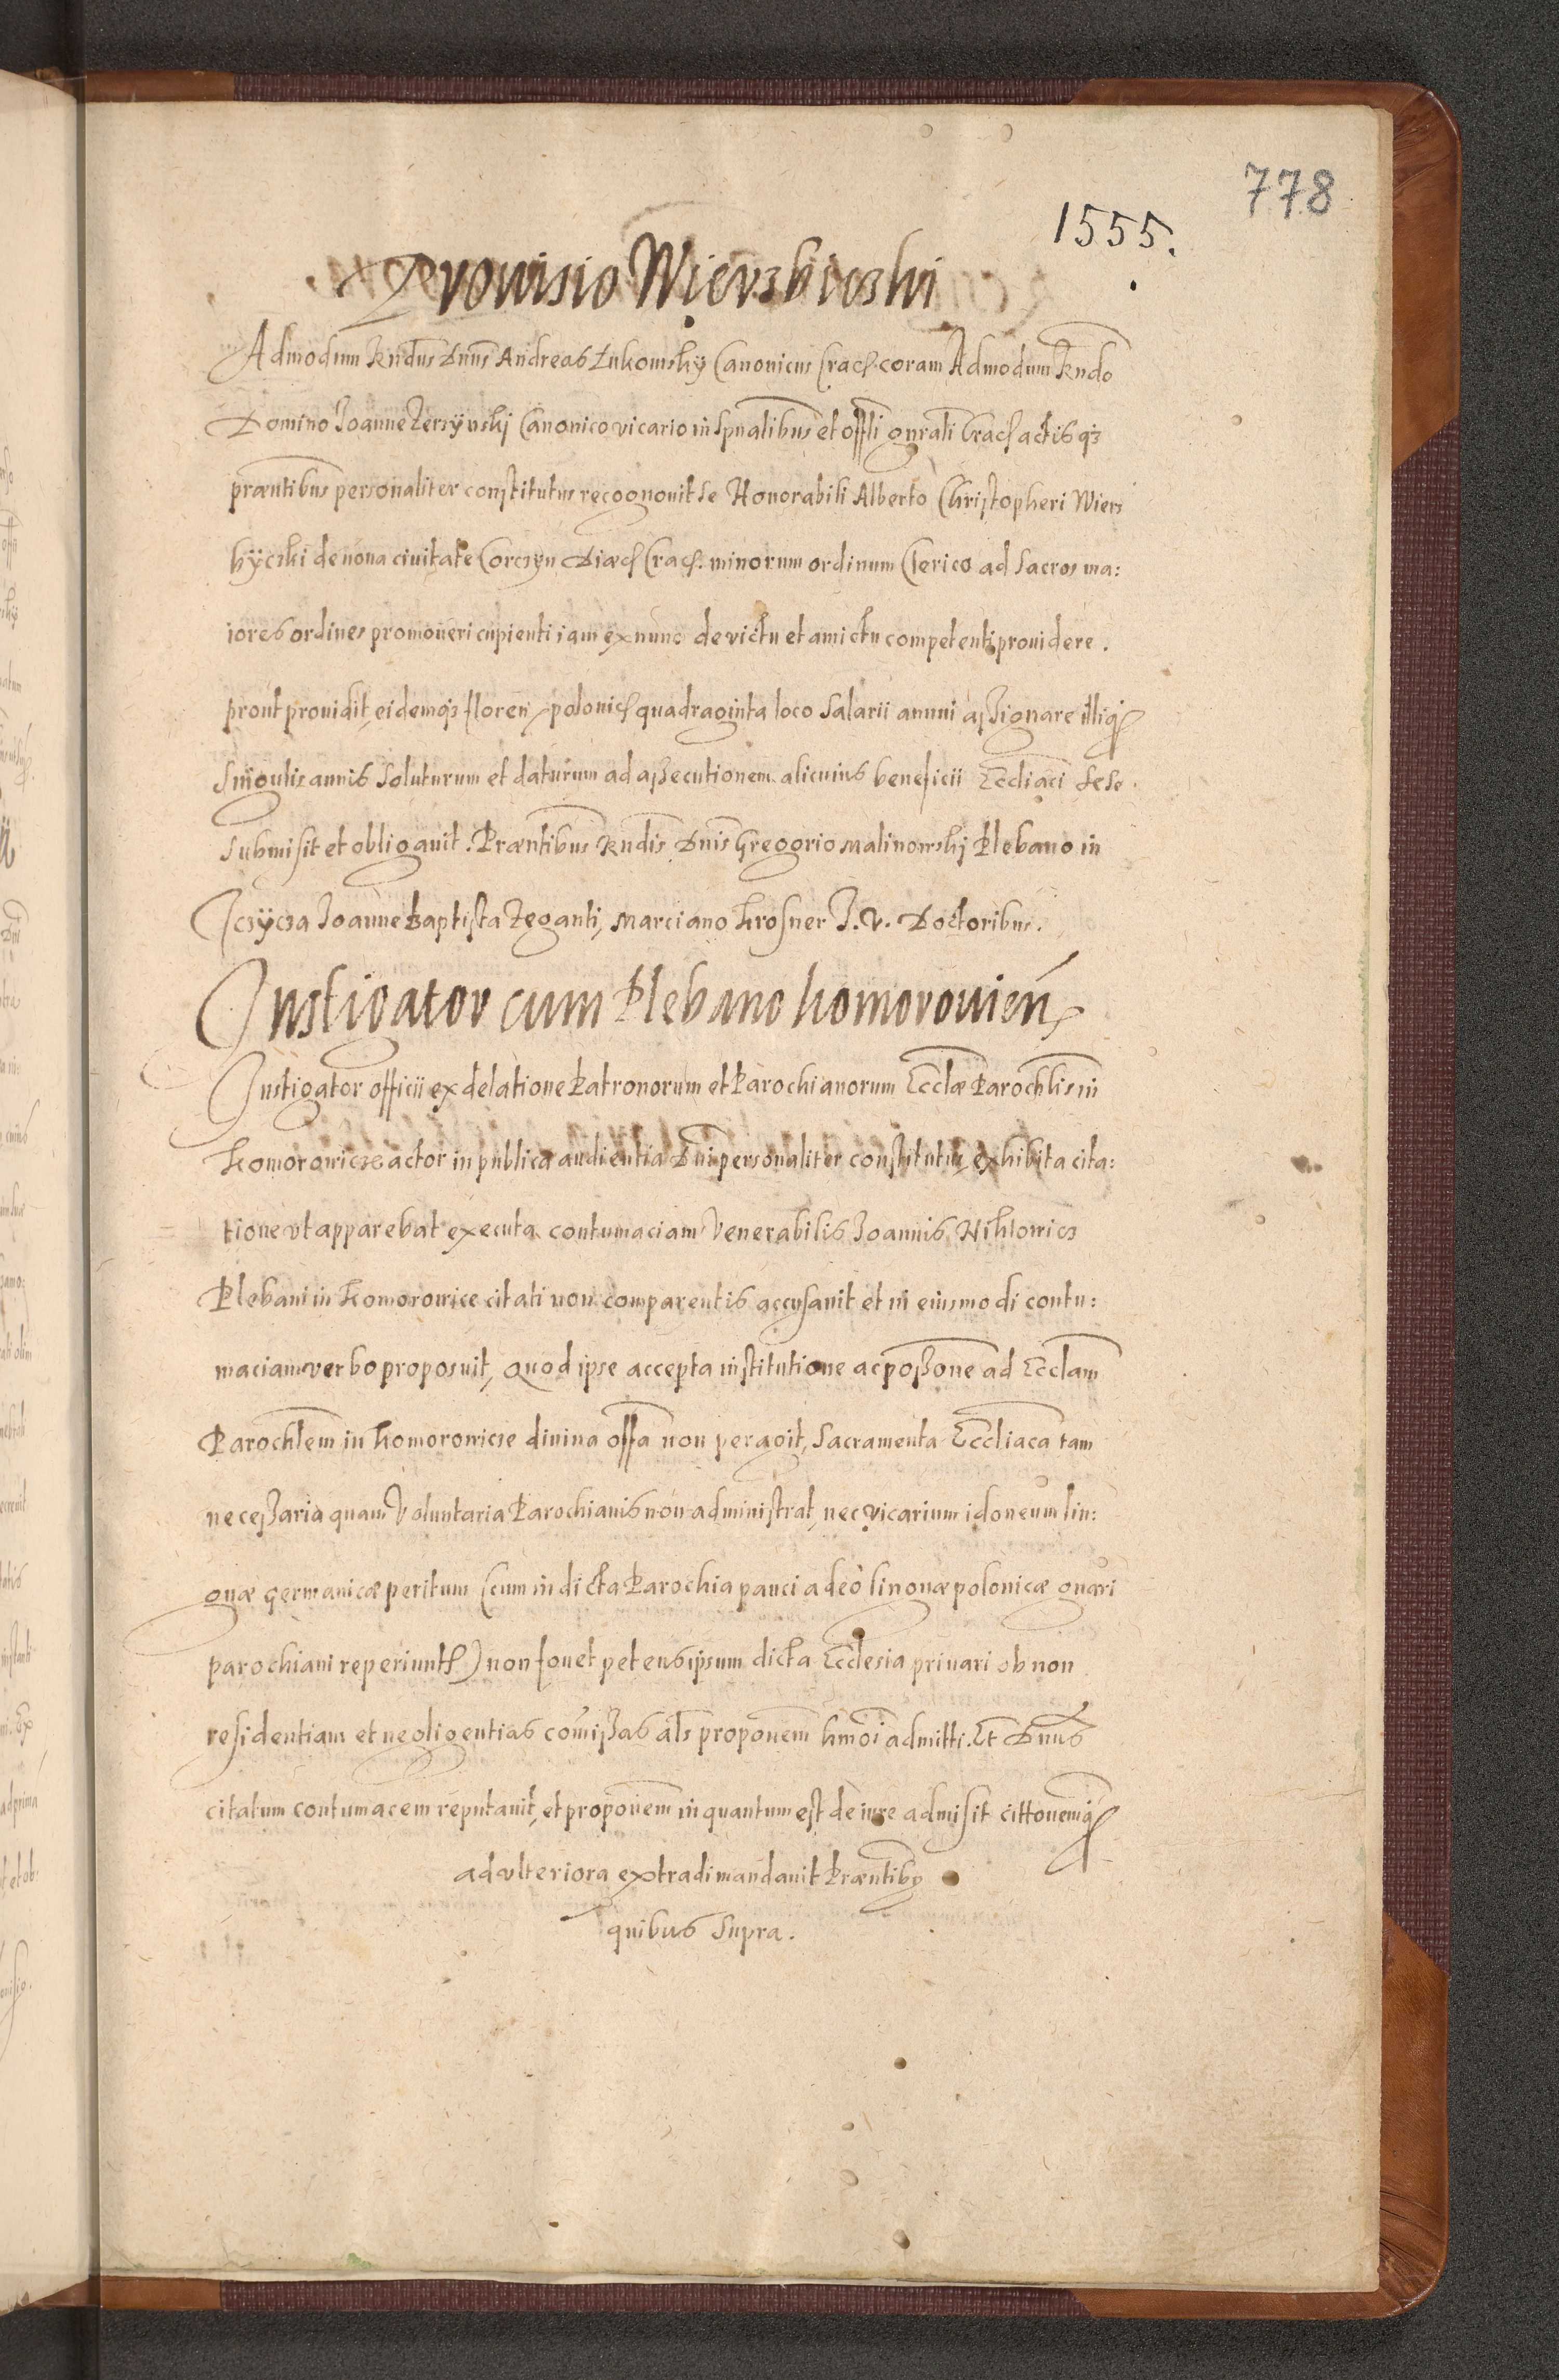 778
1555.
Prouisio Wierzbiczki
Admodum Rndus Dnus Andreas Lukowskÿ Canonicus Crac. coram Admodum Rndo
Domino Joanne Zerzÿnskj Canonico vicario in spnalibus et offli gnrali Crac actisqз
præntibus personaliter constitutus recognouit se Honorabili Alberto Christopheri Wierz
bÿczki de noua ciuitate Corczÿn Diæc Crac. minorum ordinum Clerico ad sacros ma:
iores ordines promoueri cupienti iam ex nunc de victu et amictu competenti prouidere.
prout prouidit, eidemqз floren polonic quadraginta loco salarii annui assignare illiq
singulis annis soluturum et daturum ad aßecutionem alicuius beneficii Eccliaci sese
submisit et obligauit. Præntibus Rndis Dnis Gregorio Malinowskj Plebano in
Jczÿcza Joanne Baptista Zeganti, Marciano Krosner J. V. Doctoribus.
Instigator cum Plebano Komorouien
Instigator officii ex delatione Patronorum et Parochianorum Ecclæ Parochlis in
Komorowicze actor in publica audientia Dni personaliter constitutus, exhibita cita:
tione vt apparebat executa contumaciam Venerabilis Joannis Niklowicz
Plebani in Komorowice citati non comparentis accusauit et in eiusmodi contu:
maciam verbo proposuit, Quod ipse accepta institutione ac poßone ad Ecclam
Parochlem in Komorowicze diuina offa non peragit, Sacramenta Eccliaca tam
neceßaria quam Voluntaria Parochianis non administrat, nec vicarium idoneum lin:
guæ germanicæ peritum (cum in dicta Parochia pauci adeo linguæ polonicæ gnari
parochiani reperiunt) non fouet petens ipsum dicta Ecclesia priuari ob non
residentiam et negligentias comißas als proponem hmoi admitti. Et Dnus
citatum contumacem reputauit, et proponem in quantum est de iure admisit cittonemq
ad vlteriora extradi mandauit Præntibus
quibus supra.